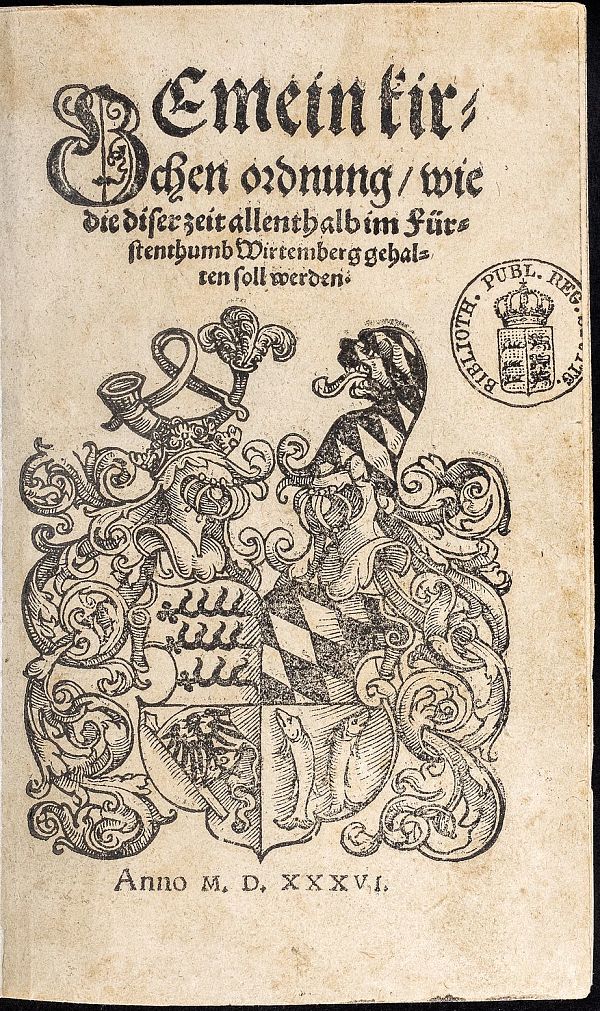 GEmein kir-
chen ordnung / wie
die diser zeit allenthalb im Für-
stenthumb Wirtemberg gehal-
ten soll werden.
BIBLIOTH. PUBL. REG.
Anno M. D. XXXVI.